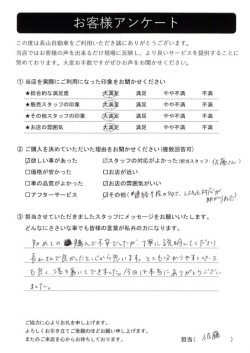 お客様アンケート
この度は長山自動車をご利用いただき誠にありがとうございます。
当店ではお客様の声を出るだけ現場に反映し、より良いサービスを提供することに
努めております。大変お手数ですがぜひお声をお聞かせください。
① 当店を実際にご利用になった印象をお聞かせください
★総合的な満足度 大満足 満足 やや不満 不満
★販売スタッフの印象 大満足 満足 やや不満 不満
★その他スタッフの印象 大満足 満足 やや不満 不満
★お店の雰囲気 大満足 満足 やや不満 不満
② ご購入を決めていただいた理由をお聞かせください(複数回答可)
☑欲しい車があった ☑スタッフの対応がよかった(担当スタッフ:佐藤さん)
□価格が安かった □お店が近い
□車の品質がよかった □お店の雰囲気がいい
□アフターサービス ☑その他(
③ 担当させていただきましたスタッフにメッセージをお願いいたします。
どんなにささいな事でも皆様の言葉が私共の力になります。
初めての購入で不安でしたが、丁寧に説明してくださり
長山さんで良かったと心から思います。とても分かりやすくペース
も良く落ち着いてできました。今日は本当にありがとうござい
ました。
ご協力に心よりお礼を申し上げます。
よろしくお引き立てご愛顧のほどお願い申し上げます。
またのご来店を心からお待ちしております。
担当( 佐藤 )